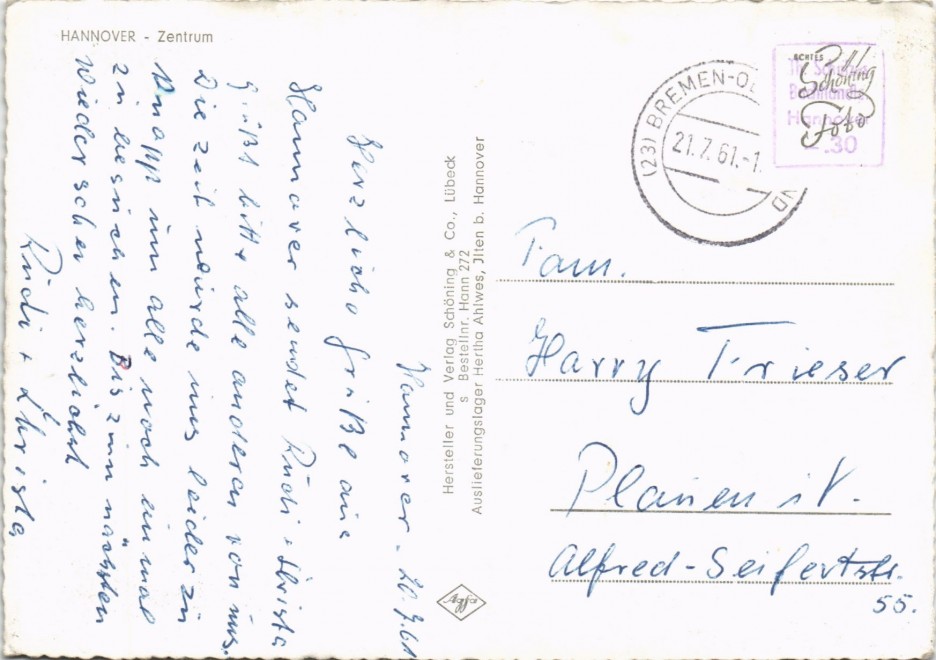 HANNOVER - Zentrum
Hannover - 20.7.61
Herzliche Grüße aus
Hannover sendet Rudi + Christa
Grüßt bitte alle anderen von uns.
Die zeit wurde uns leider zu
knapp um alle noch einmal
zu besuchen. Bis zum nächsten
wiedersehen herzlichst
Rudi + Christa
Hersteller und Verlag Schöning & Co., Lübeck
s Bestellnr. Hann 272
Auslieferungslager Hertha Ahlwes, Jlten b. Hannover
Agfa
(23) BREMEN-
21.7.61.-1
ECHTES
Schöning
Foto
Hannover
.30
Fam.
Harry Trieser
Plauen i.V.
Alfred-Seifertstr.
55.